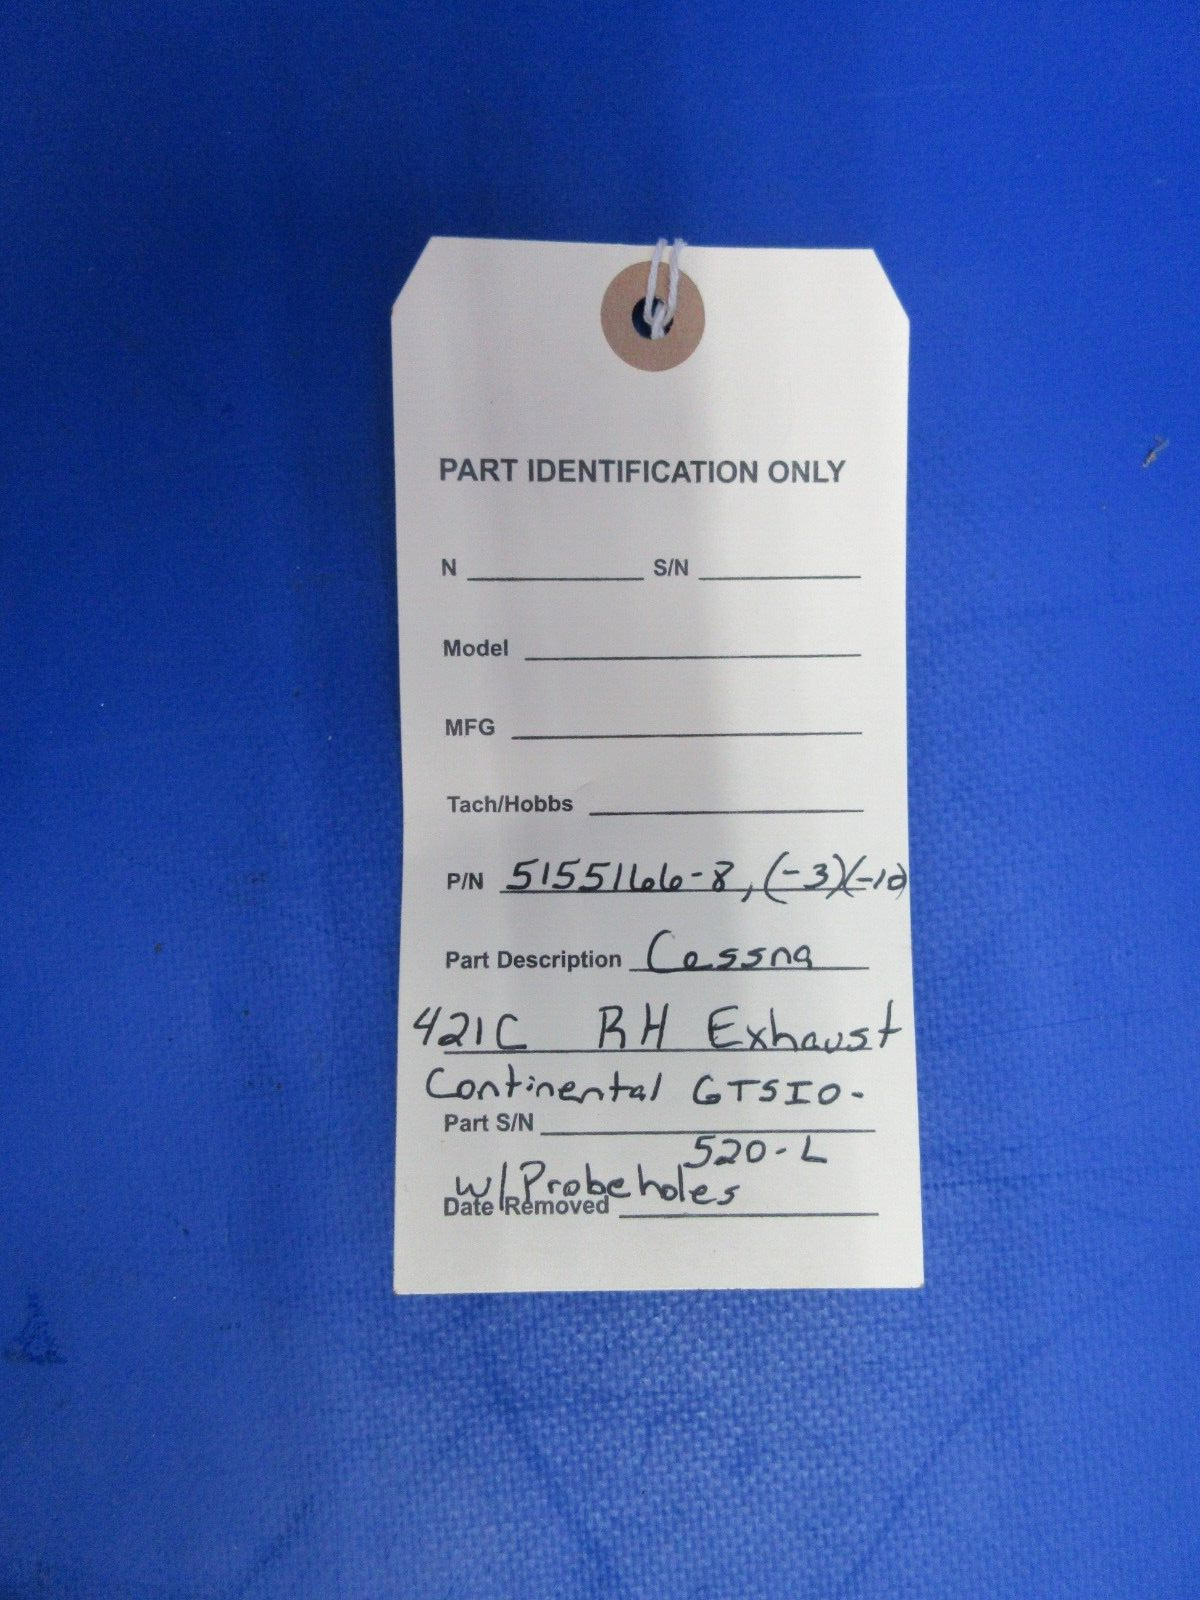 PART IDENTIFICATION ONLY
N S/N
Model
MFG
Tach/Hobbs
P/N 5155166-8, (-3)(-10
Part Description Cessna
421C RH Exhaust
Continental GTSIO-
Part S/N
520-L
w/Probeholes
Date Removed